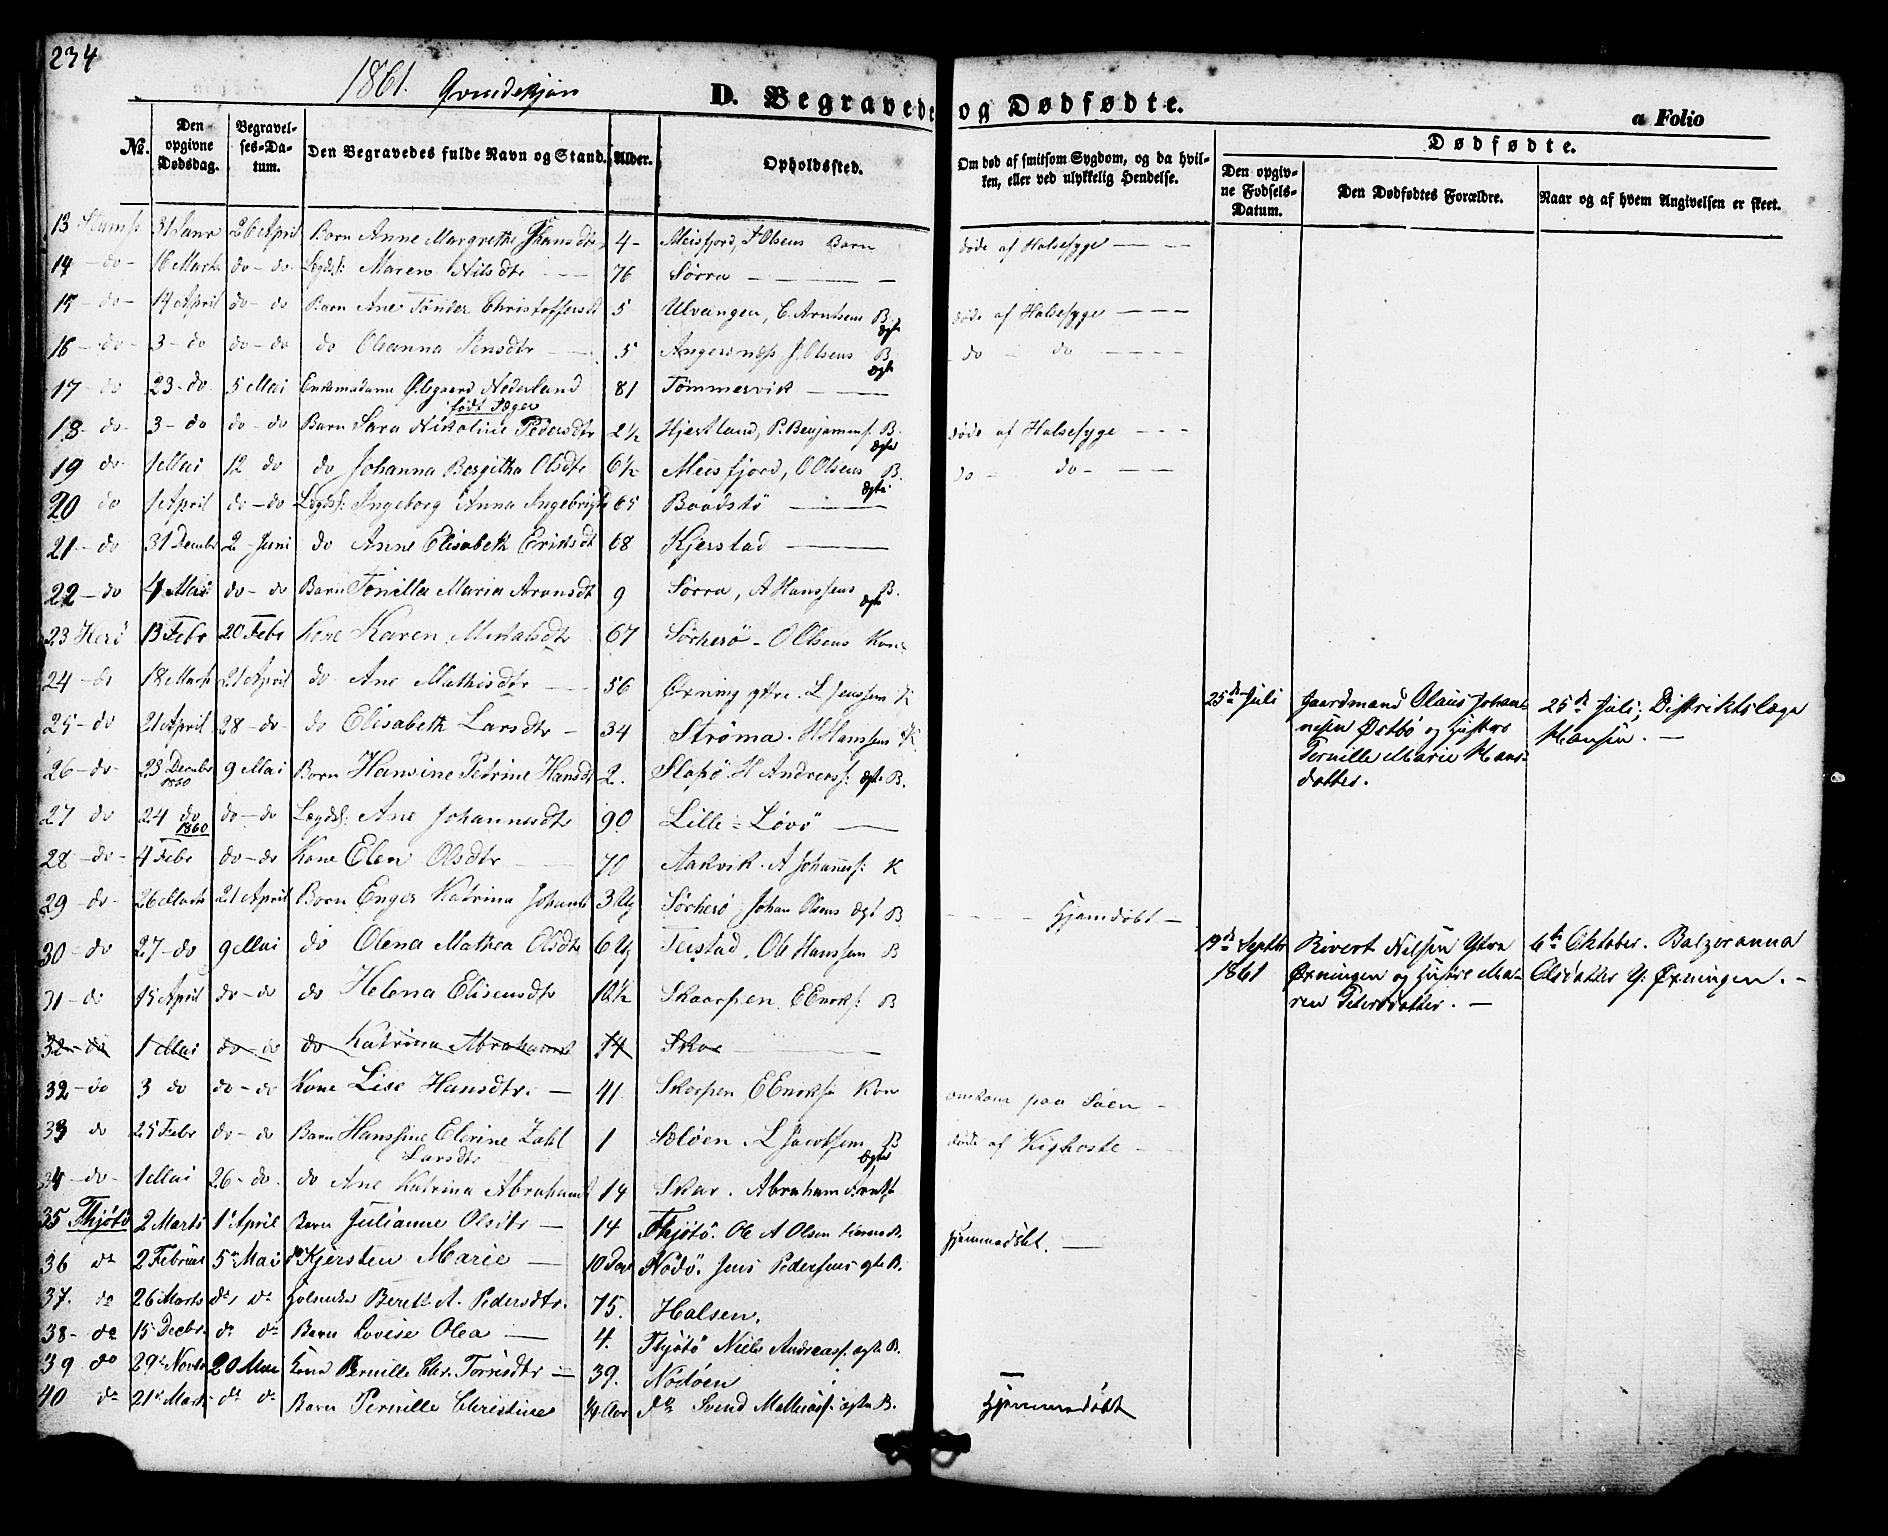 234
1861. Qvindekjøn
D. Begravede og Dødfødte.
a Folio
No. Den opgivne Dødsdag. Begravelses-Datum. Den Begravedes fulde Navn og Stand. Alder. Opholdssted. Om død af smitsom Sygdom, og da hvilken, eller ved ulykkelig Hendelse.
Dødfødte.
Den opgivne Fødsels-Datum. Den Dødfødtes Forældre. Naar og af hvem Angivelsen er skeet.
13 31 Janr 26 April Barn Anne Margrethe Hansdtr 4- Meisfjord, Olsens Barn døde af Halsesyge
14 - do - 16 Marts do - do Legdsl: Maren Nilsdtr 76 Sörra
15 - do - 14 April do - do Barn Ane Tønder Christoffersdt 5 Ulvangen, C. Arntsens B. ægte døde af Halsesyge
16 - do - 3 - do do - do do Oleanna Jensdtr 5 Angersnæs J. Olsens B ægte do do
17 - do 23 - do 5 Mai Enkemadame Ølegaard Nederland 81 Tømmervik
født Jæger
18 - do - 3 - do do - do Barn Sara Nikoline Pedersdtr 2½ Hjertland, P. Benjamins: B. ægte døde af Halsesyge
19 do 1 Mai 12 do do Johanna Bergitha Olsdtr 6½ Meisfjord, O Olsens B. ægte. do - do -
20 do 1 April do - do Legdsl: Ingeborg Anna Ingebrigtsd 65 Baadstö
21 - do 31 Decembr 2 Juni do Anne Elisabeth Eriksdt 68 Kjerstad
22 - do 4 Mai do - do Barn Tonilla Maria Aronsdt 9 Sörra, A Hanssens B. ægte
23 Herö 13 Febr 20 Febr Kone Karen Mikalsdtr 67 Sörherö - O Olsens Kone
24 - do 18 Marts 21 April do Ane Mathisdtr 56 Øxning yttre. L Jenssens K
25 - do 21 April 28 - do - do Elisabeth Larsdtr 34 Ströma. H Hanssens K
26 - do - 23 Decembr 1860 9 Mai Barn Hansine Petrine Hansdt 2. Slapö H Andreass: ægte B.
27 do 24 do 1860 do - do Legdsl: Ane Johannesdtr 90 Lille-Lövö
28 - do - 4 Febr do - do Kone Elen Olsdtr 70 Aakvik. A Johaness: K
29 - do - 26 Marts 21 April Barn Enger Katrina Johansd 3 Ug Sörherö Johan Olsens ægt B Hjemdöbt -
30 - do 27 - do 9 Mai do Olena Mathea Olsdtr 6 Ug Teistad, Ole Hanssens B
31 - do 15 April do - do do Helena Elisensdtr 12½ Skaarpen E Enoks: B
32 - do 1 Mai do - do do Katrina Abrahamsd 14 Skar
32 - do 3 do do - do Kone Lise Hansdtr. - 41 Skarpen E Enoks: Kone omkom paa Søen -
33 do 25 Febr do - do Barn Hanssine Elerine Zahl 1 Sæløen. L Jacobsens B ægte döde af Kighoste
Larsdtr
34 - do - 1 Mai 26 - do. do Ane Katrina Abrahamsd 14 Skar. Abraham Arnts:
35 Thjötö 2 Marts 1 April Barn Julianne Olsdtr - 14 Thjötö. Ole A Olsen B.
36 do 2 Februar 5 Mai do Kjersten Marie - 10 Dage Nödö. Jens Pedersens ægte B. Hjemmedöbt. -
37. do 26 Marts do do Berith A. Pedersdtr. 75. Halsen.
38 - do 15 Decbr. do do Barn Lovise Olea - 4. Thjötö Niels Andreass. ægte B.
39 do 29 Novbr 20 Mai Kone Pernille Chr. Torrisdtr - 39. Nödöen
40 do 21 Marts do do Barn Pernille Christine do Svend Mathias: ægte B. Hjemmedöbt
25de Juli Gaardmand Olaus Johannesen Østbö og Hustru Pernille Marie Hansdatter. 25de Juli; Distriktslæge Hansen. -
19de Septbr 1861 Sivert Nilsen Ytre Øxningen og Hustru Maren Petersdatter. - 6te Oktober. Balzeranna Olsdatter Y: Øxningen. -